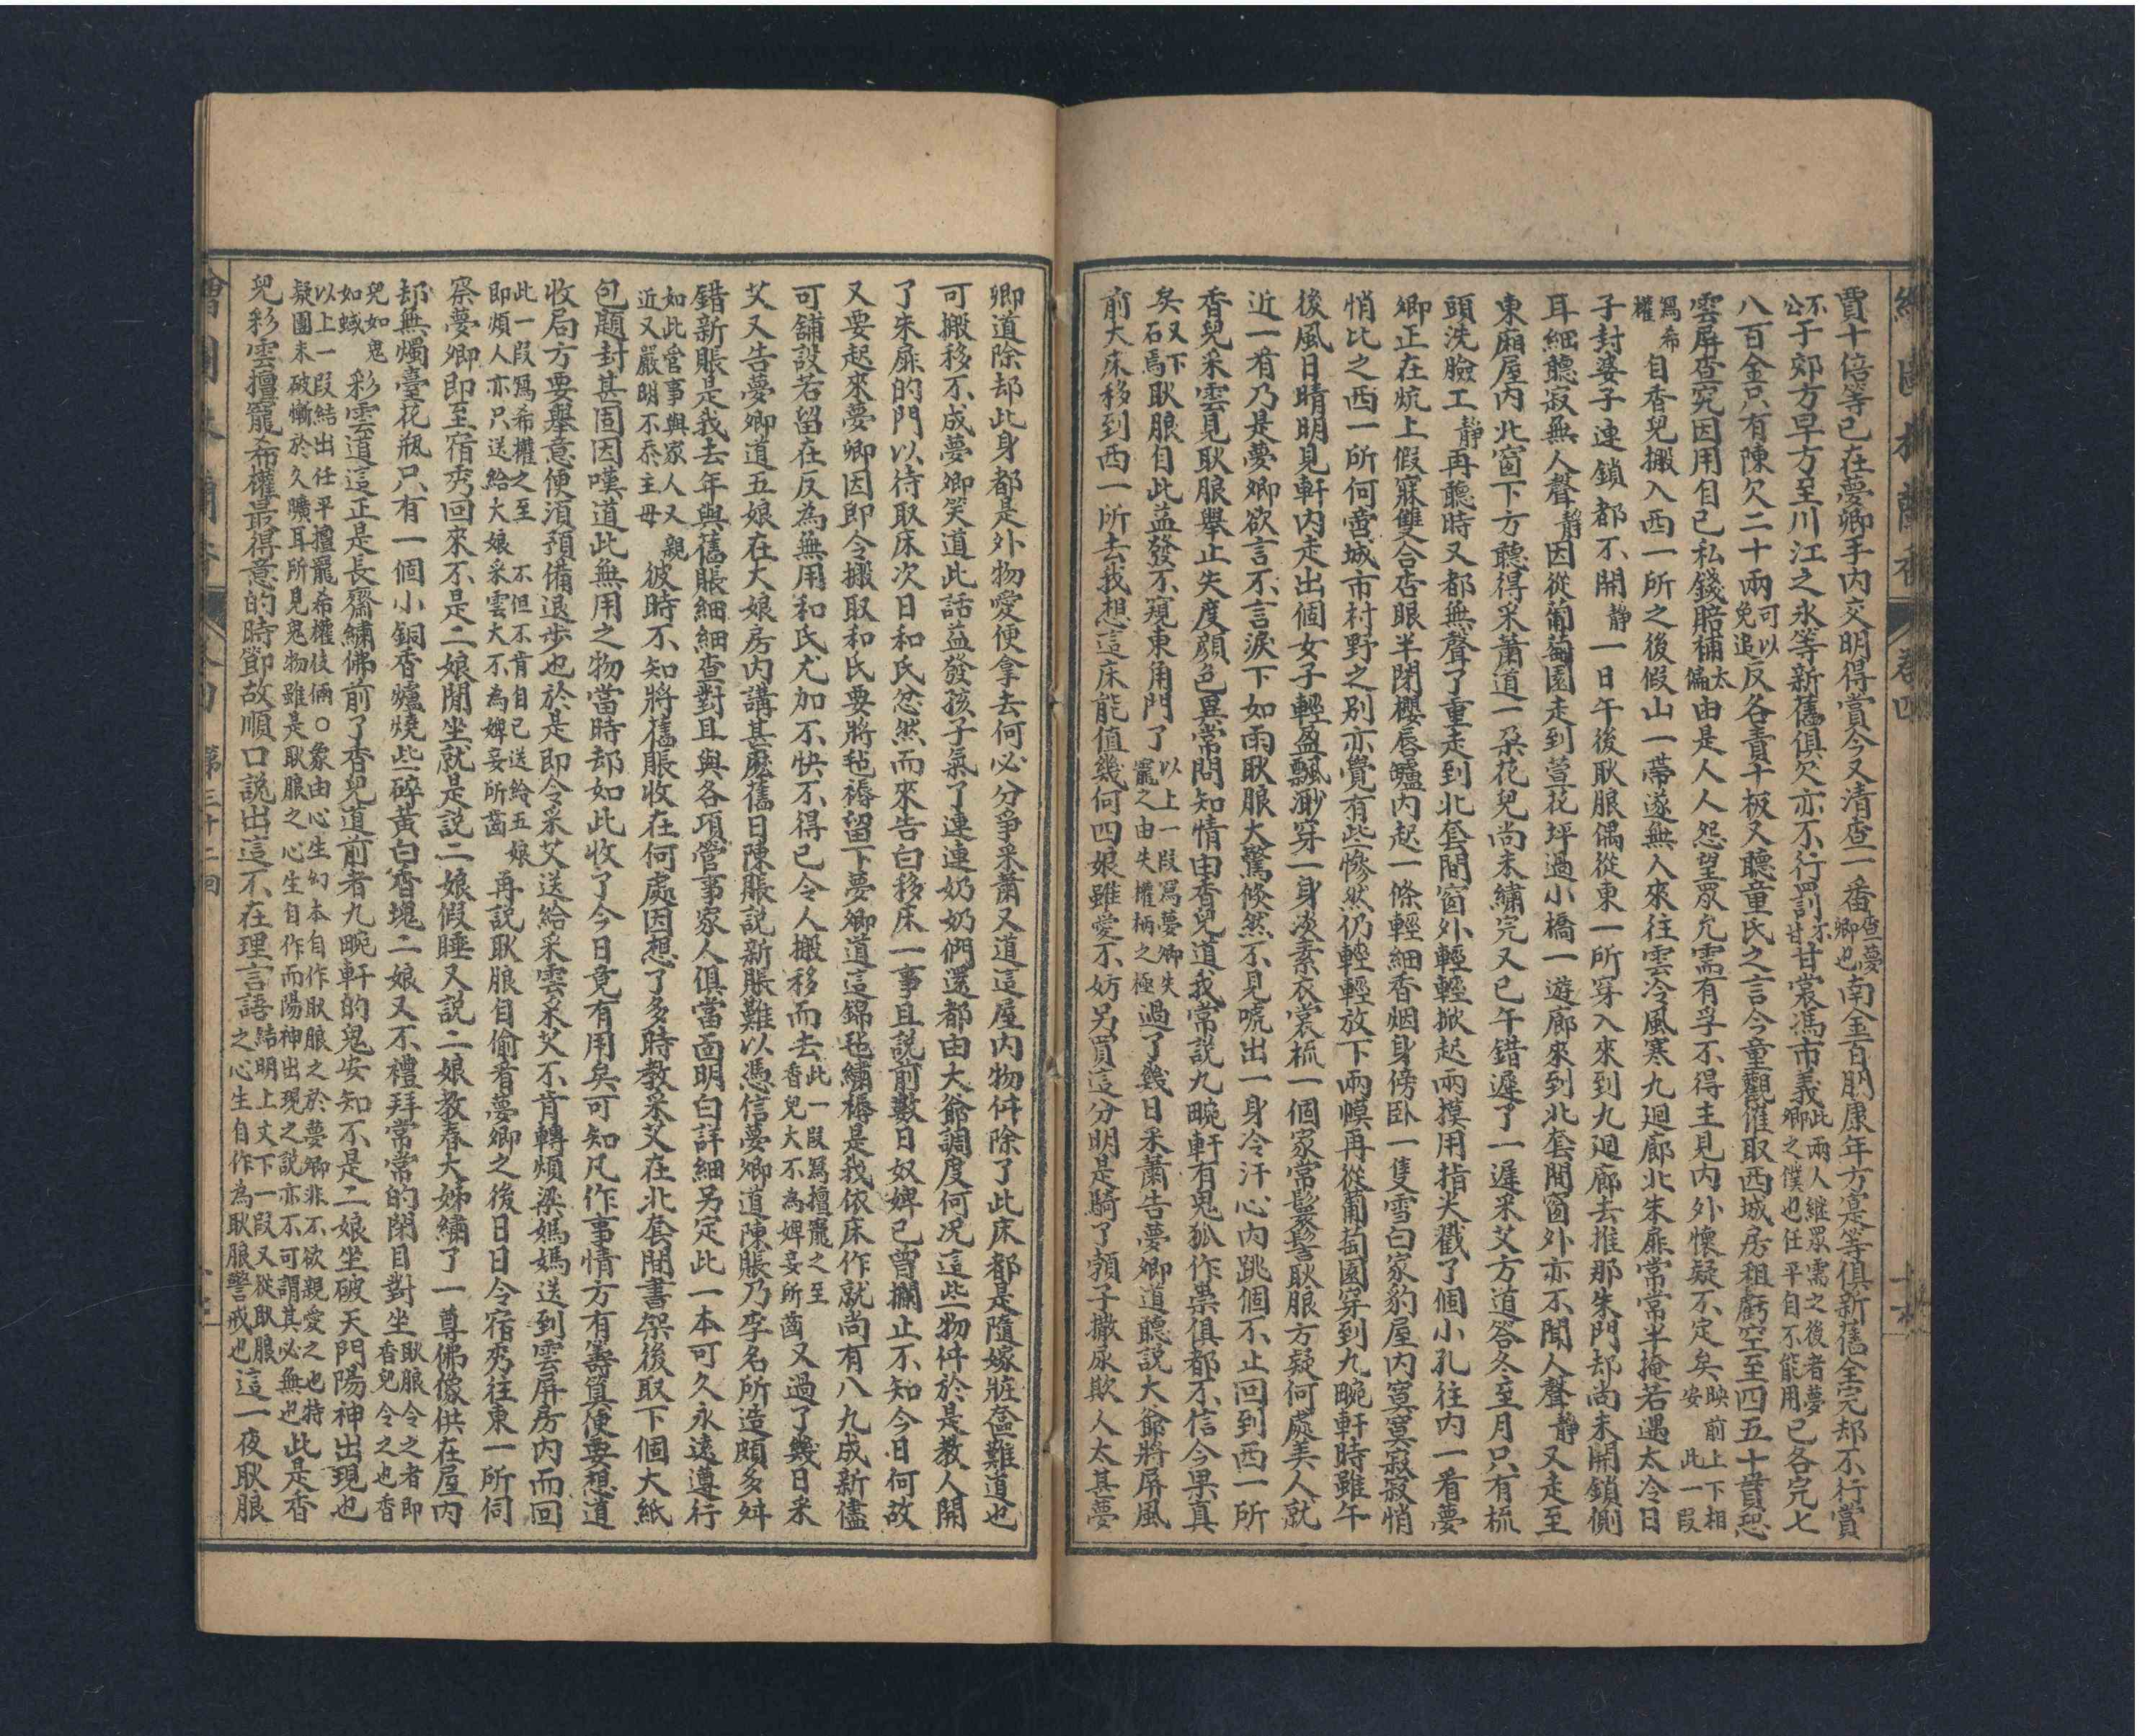 賈十倍等已在夢卿手內交明得賞今又清查一番查夢卿也南金百朋康年方寔等俱新舊全完却不行賞
不公于郊方早方至川江之永等新舊俱欠亦不行罰亦甘甘裳馮市義此兩人繼眾需之後者夢卿之僕也任平自不能用已各完七
八百金只有陳欠二十兩可以免追反各責十板又聽童氏之言令童觀催取西城房租虧空至四五十貫恐
雲屏查究因用自己私錢賠補太偏由是人人怨望眾允需有孚不得主見內外懷疑不定矣映前上下相安此一段
寫希權自香兒搬入西一所之後假山一帶遂無人來往雲冷風寒九迴廊北朱扉常常半掩若遇太冷日
子封婆子連鎖都不開靜一日午後耿朖偶從東一所穿入來到九迴廊去推那朱門却尚未開鎖側
耳細聽寂無人聲靜因從葡萄園走到萱花坪過小橋一遊廊來到北套間窗外亦不聞人聲靜又走至
東廂屋內北窗下方聽得采蕭道一朶花兒尚未繡完又已午錯遲了一遲采艾方道答冬至月只有梳
頭洗臉工靜再聽時又都無聲了重走到北套間窗外輕輕掀起兩摸用指尖戳了個小孔往內一看夢
卿正在炕上假寐雙合杏眼半閉櫻唇鑪內起一條輕細香烟身傍卧一隻雪白家豹屋內寞寞寂寂悄
悄比之西一所何啻城市村野之別亦覺有些慘然仍輕輕放下兩幙再從葡萄園穿到九畹軒時雖午
後風日晴明見軒內走出個女子輕盈飄渺穿一身淡素衣裳梳一個家常髮髻耿朖方疑何處美人就
近一看乃是夢卿欲言不言淚下如雨耿朖大驚倏然不見唬出一身冷汗心內跳個不止回到西一所
香兒采雲見耿朖舉止失度顔色異常問知情由香兒道我常說九畹軒有鬼狐作祟俱都不信今果真
矣又下石焉耿朖自此益發不窺東角門了以上一段寫夢卿失寵之由失權柄之極過了幾日采蕭告夢卿道聽說大爺將屏風
前大床移到西一所去我想這床能值幾何四娘雖愛不妨另買這分明是騎了頸子撒尿欺人太甚夢
卿道除却此身都是外物愛便拿去何必分爭采蕭又道這屋內物件除了此床都是隨嫁粧奩難道也
可搬移不成夢卿笑道此話益發孩子氣了連連奶奶們還都由大爺調度何况這些物件於是教人開
了朱扉的門以待取床次日和氏忿然而來告白移床一事且說前數日奴婢已曾攔止不知今日何故
又要起來夢卿因即令搬取和氏要將毡褥留下夢卿道這錦毡繡褥是我依床作就尚有八九成新儘
可舖設若留在反為無用和氏尤加不快不得已令人搬移而去此一段寫擅寵之至香兒大不為婢妾所齒又過了幾日采
艾又告夢卿道五娘在大娘房內講甚麼舊日陳賬說新賬難以憑信夢卿道陳賬乃李名所造頗多舛
錯新賬是我去年與舊賬細細查對且與各項管事家人俱當面明白詳細另定此一本可久永遠遵行
如此管事與家人又親近又嚴明不忝主母彼時不知將舊賬收在何處因想了多時教采艾在北套間書架後取下個大紙
包題封甚固因嘆道此無用之物當時却如此收了今日竟有用矣可知凡作事情方有籌算便要想道
收局方要舉意便須預備退步也於是即令采艾送給采雲采艾不肯轉煩梁媽媽送到雲屏房內而回
此一段寫希權之至不但不肯自已送給五娘即煩人亦只送給大娘采雲大不為婢妾所齒再說耿朖自偷看夢卿之後日日令宿秀往東一所伺
察夢卿即至宿秀回來不是二娘閒坐就是說二娘假睡又說二娘教春大姊繡了一尊佛像供在屋內
却無燭臺花瓶只有一個小銅香爐燒些碎黃白香塊二娘又不禮拜常常的閉目對坐耿朖令之者即香兒令之也香
兒如鬼如蜮彩雲道這正是長齋繡佛前了香兒道前者九畹軒的鬼安知不是二娘坐破天門陽神出現也
以上一段結出任平擅寵希權伎倆○象由心生幻本自作耿朖之於夢卿非不欲親愛之也特疑團未破慚於久曠耳所見鬼物雖是耿朖之心生自作而陽神出現之說亦不可謂其必無也此是香
兒彩雲擅寵希權最得意的時節故順口說出這不在理言語結明上文下一段又從耿朖之心生自作為耿朖警戒也這一夜耿朖
卷四
第三十二回